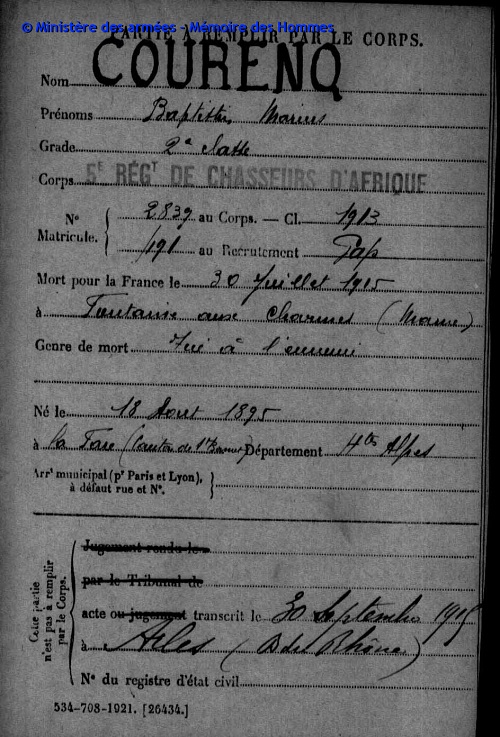 © Ministère des armées - Mémoire des Hommes
CARTE A REMPLIR PAR LE CORPS.
COURENQ
Nom
Prénoms Baptistin Marius
Grade 2e classe
Corps 5E RÉGT DE CHASSEURS D'AFRIQUE
N° Matricule. { 2839 au Corps. — Cl. 1913
191 au Recrutement Gap
Mort pour la France le 30 Juillet 1915
à Fontaine aux Charmes (Marne)
Genre de mort Tué à l'ennemi
Né le 18 Aout 1895
à la Fare (Canton de St Bonnet) Département Htes Alpes
Arrt municipal (pr Paris et Lyon),
à défaut rue et N°.
Cette partie
n'est pas à remplir
par le Corps.
Jugement rendu le
par le Tribunal de
acte ou jugement transcrit le 30 Septembre 1915
à Arles (B du Rhône)
N° du registre d'état civil
534-708-1921. [26434.]